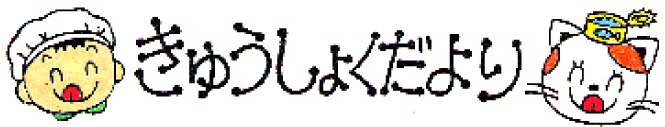 きゅうしょくだより